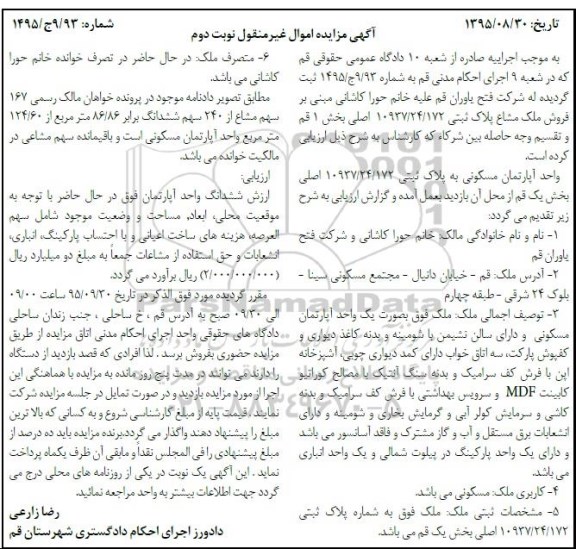 تاریخ: ۱۳۹۵/۰۸/۳۰
شماره: ۹/۹۳ج/۱۴۹۵
آگهی مزایده اموال غیرمنقول نوبت دوم
به موجب اجراییه صادره از شعبه ۱۰ دادگاه عمومی حقوقی قم
که در شعبه ۹ اجرای احکام مدنی قم به شماره ۹/۹۳ج/۱۴۹۵ ثبت
گردیده له شرکت فتح یاوران قم علیه خانم حورا کاشانی مبنی بر
فروش ملک مشاع پلاک ثبتی ۱۰۹۳۷/۲۴/۱۷۲ اصلی بخش ۱ قم
و تقسیم وجه حاصله بین شرکاء که کارشناس به شرح ذیل ارزیابی
کرده است.
واحد آپارتمان مسکونی به پلاک ثبتی ۱۰۹۳۷/۲۴/۱۷۲ اصلی
بخش یک قم از محل آن بازدید بعمل آمده و گزارش ارزیابی به شرح
زیر تقدیم می گردد:
۱- نام و نام خانوادگی مالک: خانم حورا کاشانی و شرکت فتح
یاوران قم
۲- آدرس ملک: قم - خیابان دانیال - مجتمع مسکونی سینا -
بلوک ۲۴ شرقی - طبقه چهارم
۳- توصیف اجمالی ملک: ملک فوق بصورت یک واحد آپارتمان
مسکونی و دارای سالن نشیمن با شومینه و بدنه کاغذ دیواری و
کفپوش پارکت، سه اتاق خواب دارای کمد دیواری چوبی، آشپزخانه
اپن با فرش کف سرامیک و بدنه سنگ آنتیک با مصالح کورانیو
کابینت MDF و سرویس بهداشتی با فرش کف سرامیک و بدنه
کاشی و سرمایش کولر آبی و گرمایش بخاری و شومینه و دارای
انشعابات برق مستقل و آب و گاز مشترک و فاقد آسانسور می باشد
و دارای یک واحد پارکینگ در پیلوت شمالی و یک واحد انباری
می باشد.
۴- کاربری ملک: مسکونی می باشد.
۵- مشخصات ثبتی ملک: ملک فوق به شماره پلاک ثبتی
۱۰۹۳۷/۲۴/۱۷۲ اصلی بخش یک قم می باشد.
۶- متصرف ملک: در حال حاضر در تصرف خوانده خانم حورا
کاشانی می باشد.
مطابق تصویر دادنامه موجود در پرونده خواهان مالک رسمی ۱۶۷
سهم مشاع از ۲۴۰ سهم ششدانگ برابر ۸۶/۸۶ متر مربع از ۱۲۴/۶۰
متر مربع واحد آپارتمان مسکونی است و باقیمانده سهم مشاعی در
مالکیت خوانده می باشد.
ارزیابی:
ارزش ششدانگ واحد آپارتمان فوق در حال حاضر با توجه به
موقعیت محلی، ابعاد، مساحت و وضعیت موجود شامل سهم
العرصه، هزینه های ساخت اعیانی و با احتساب پارکینگ، انباری،
انشعابات و حق استفاده از مشاعات جمعاً به مبلغ دو میلیارد ریال
(۲/۰۰۰/۰۰۰/۰۰۰) ریال برآورد می گردد.
مقرر گردیده مورد فوق الذکر در تاریخ ۹۵/۰۹/۳۰ ساعت ۰۹/۰۰
الی ۰۹/۳۰ صبح به آدرس قم ، خ ساحلی ، جنب زندان ساحلی
دادگاه های حقوقی واحد اجرای احکام مدنی اتاق مزایده از طریق
مزایده حضوری بفروش برسد . لذا افرادی که قصد بازدید از دستگاه
را دارند می توانند در مدت پنج روز مانده به مزایده با هماهنگی این
اجرا از مورد مزایده بازدید و در صورت تمایل در جلسه مزایده شرکت
نمایند. قیمت پایه از مبلغ کارشناسی شروع و به کسانی که بالا ترین
مبلغ را پیشنهاد دهند واگذار می گردد.برنده مزایده باید ده درصد از
مبلغ پیشنهادی را فی المجلس نقداً و مابقی آن ظرف یکماه پرداخت
نماید . این آگهی یک نوبت در یکی از روزنامه های محلی درج می
گردد جهت اطلاعات بیشتر به واحد مراجعه نمائید.
رضا زارعی
دادورز اجرای احکام دادگستری شهرستان قم